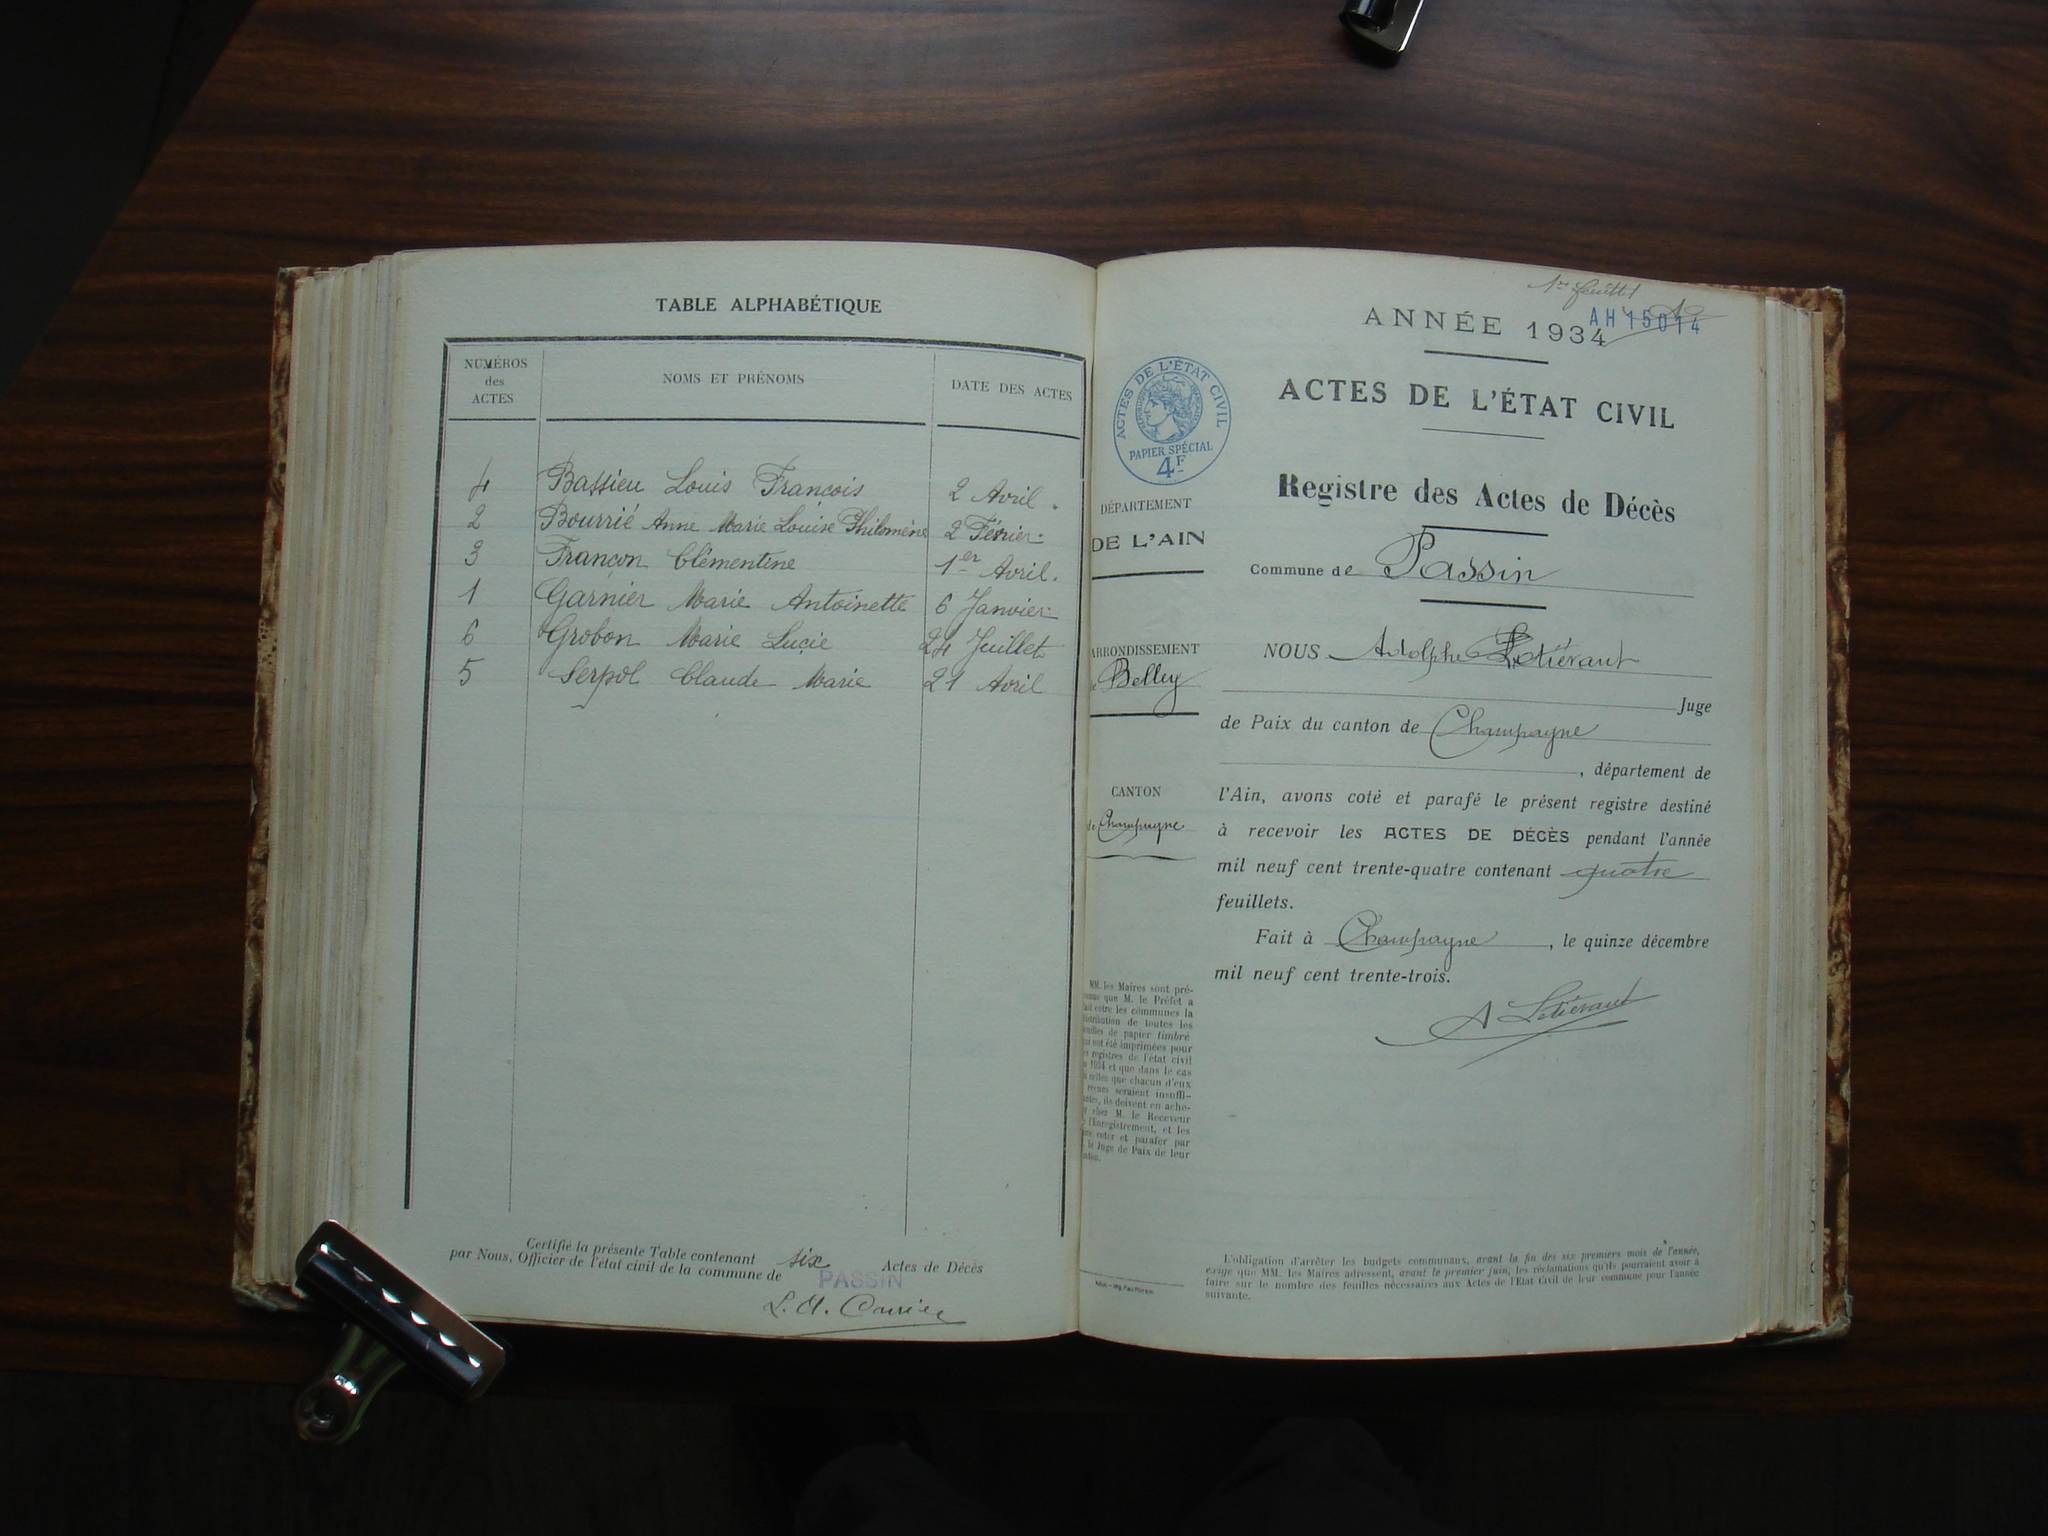 TABLE ALPHABÉTIQUE
NUMÉROS
des
ACTES
NOMS ET PRÉNOMS
DATE DES ACTES
4 Bassieu Louis François 2 Avril.
2 Bourrié Anne Marie Louise Philomène 2 Février.
3 Françon Clémentine 1er Avril.
1 Garnier Marie Antoinette 6 Janvier.
6 Grobon Marie Lucie 24 Juillet
5 Serpol Claude Marie 21 Avril
Certifié la présente Table contenant six Actes de Décès
par Nous, Officier de l'état civil de la commune de PASSIN
1er feuillet
ANNÉE 1934
AH 15014
ACTES DE L'ÉTAT CIVIL
PAPIER SPÉCIAL
4F
ACTES DE L'ÉTAT CIVIL
Registre des Actes de Décès
Commune de Passin
DÉPARTEMENT
DE L'AIN
ARRONDISSEMENT
de Belley
CANTON
de Champagne
NOUS Adolphe Létiévant
Juge
de Paix du canton de Champagne
, département de
l'Ain, avons coté et parafé le présent registre destiné
à recevoir les ACTES DE DÉCÈS pendant l'année
mil neuf cent trente-quatre contenant quatre
feuillets.
Fait à Champagne, le quinze décembre
mil neuf cent trente-trois.
A Létiévant
MM. les Maires sont pré-
que M. le Préfet a
fait entre les communes la
distribution de toutes les
feuilles de papier timbré
qui ont été imprimées pour
les registres de l'état civil
1934 et que dans le cas
celles que chacun d'eux
reçues seraient insuffi-
santes, ils doivent en ache-
chez M. le Receveur
de l'Enregistrement, et les
faire coter et parafer par
le Juge de Paix de leur
canton.
L'obligation d'arrêter les budgets communaux, avant la fin des six premiers mois de l'année,
exige que MM. les Maires adressent, avant le premier juin, les réclamations qu'ils pourraient avoir à
faire sur le nombre des feuilles nécessaires aux Actes de l'Etat Civil de leur commune pour l'année
suivante.